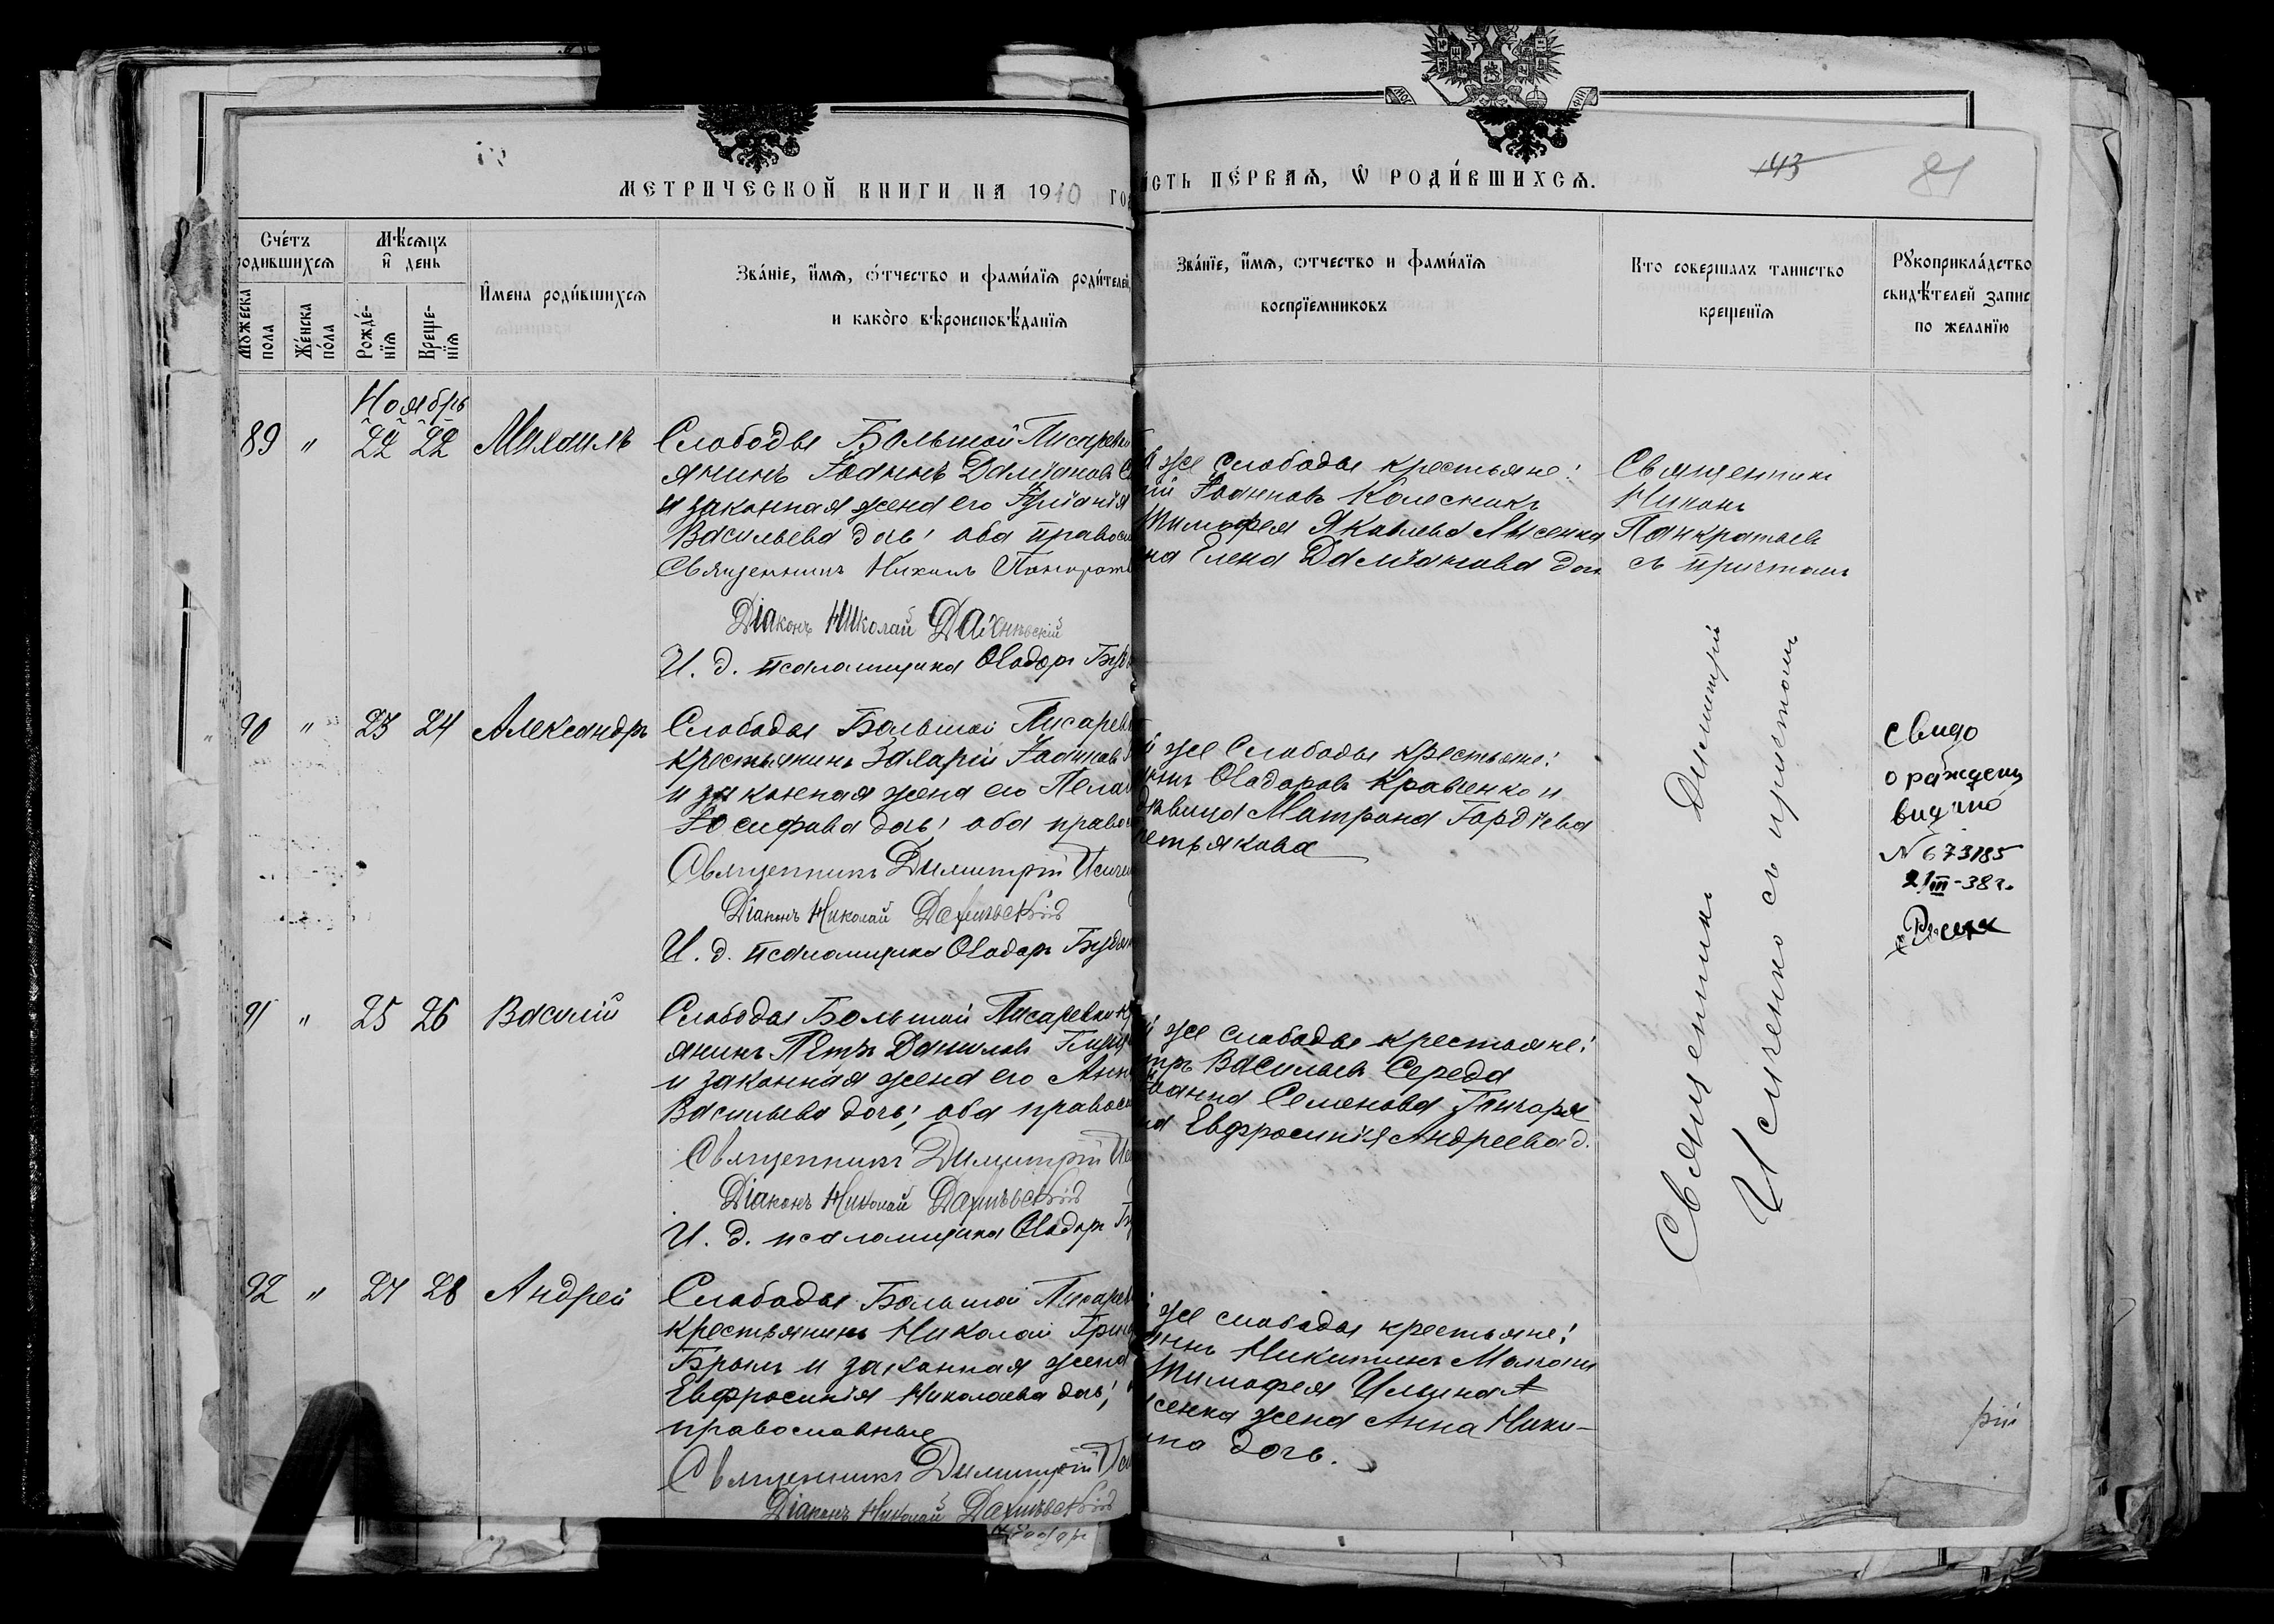 МЕТРИЧЕСКОЙ КНИГИ НА 1910
ПЕ́РВАѦ, Ѡ РОДИ́ВШИХСѦ.
143
81
Сче́тъ
родившихсѧ
Мѣ́сѧцъ
и҆ день
И҆мена роди́вшихсѧ
Зва́нїе, и҆́мѧ, ѻ҆́тчество и фами́лїѧ роди́телей,
и како́го вѣроисповѣ́данїѧ
Мꙋжеска
пола
Же́нска
по́ла
Рожде́-
нїѧ
Креще-
нїѧ
Зва́нїе, и҆́мѧ, ѻтчество и фами́лїѧ
воспрїемниковъ
Кто совершалъ таинство
крещенїѧ
Рꙋкоприкла́дство
свидѣ́телей запис
по желанїю
Ноябрь
89 " 22 22 Михаилъ
Слободы Большой Писаревки
янинъ Іоаннъ Даміановъ
и законная жена его
Васильева дочь; оба правос
Священникъ Никонъ Панкрать
Діаконъ Николай
И. д. псаломщика Ѳеодоръ
же слободы крестьяне:
Іоанновъ Колесникъ
Тимофея Яковлева Лысенка
Елена Даміанова доч
Священникъ
Никонъ
Панкратьевъ
съ причтомъ
90 " 23 24 Александръ
Слободы Большой Писарев
крестьянинъ Захарій Іоанновъ
и законная жена его Пелаг
Іосифова дочь; оба право
Священникъ Димитрій Исиче
Діаконъ Николай
И. д. псаломщика Ѳеодоръ
же Слободы крестьяне:
Ѳеодоровъ Кравченко и
дѣвица Матрона Гордѣева
Третьякова
Священникъ Димитрій
Исиченко съ причтомъ
свидо
о рождени
видано
N 673185
21/III-38 г.
91 " 25 26 Василій
Слободы Большой Писаревки кр
янинъ Петръ Даниловъ
и законная жена его Анн
Васильева дочь; оба правос
Священникъ Димитрій Ис
Діаконъ Николай
И. д. псаломщика Ѳеодоръ
же слободы крестьяне:
Васильевъ Середа
Іоанна Семенова
Евфросинія Андреева д.
92 " 27 28 Андрей
Слободы Большой Писарев
крестьянинъ Николай Григ
Брыль и законная жена
Евфросинія Николаева дочь;
православные
Священникъ Димитрій Ис
Діаконъ Николай
же слободы крестьяне:
Никитинъ
Тимофея Ильина
сенка жена Анна Ники-
на дочь.